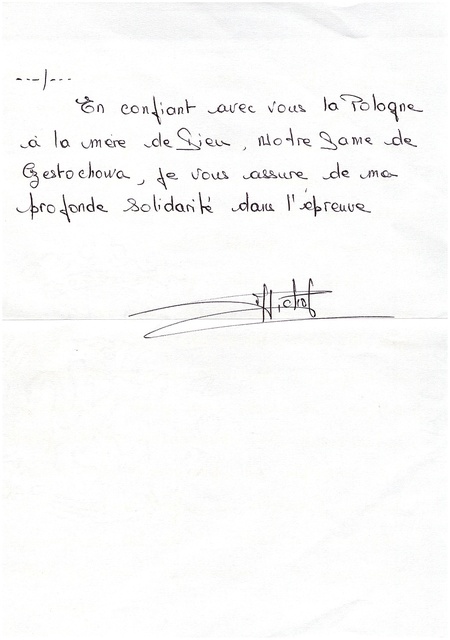 ---/---
En confiant avec vous la Pologne
à la mère de Dieu, Notre Dame de
Czestochowa, je vous assure de ma
profonde solidarité dans l'épreuve